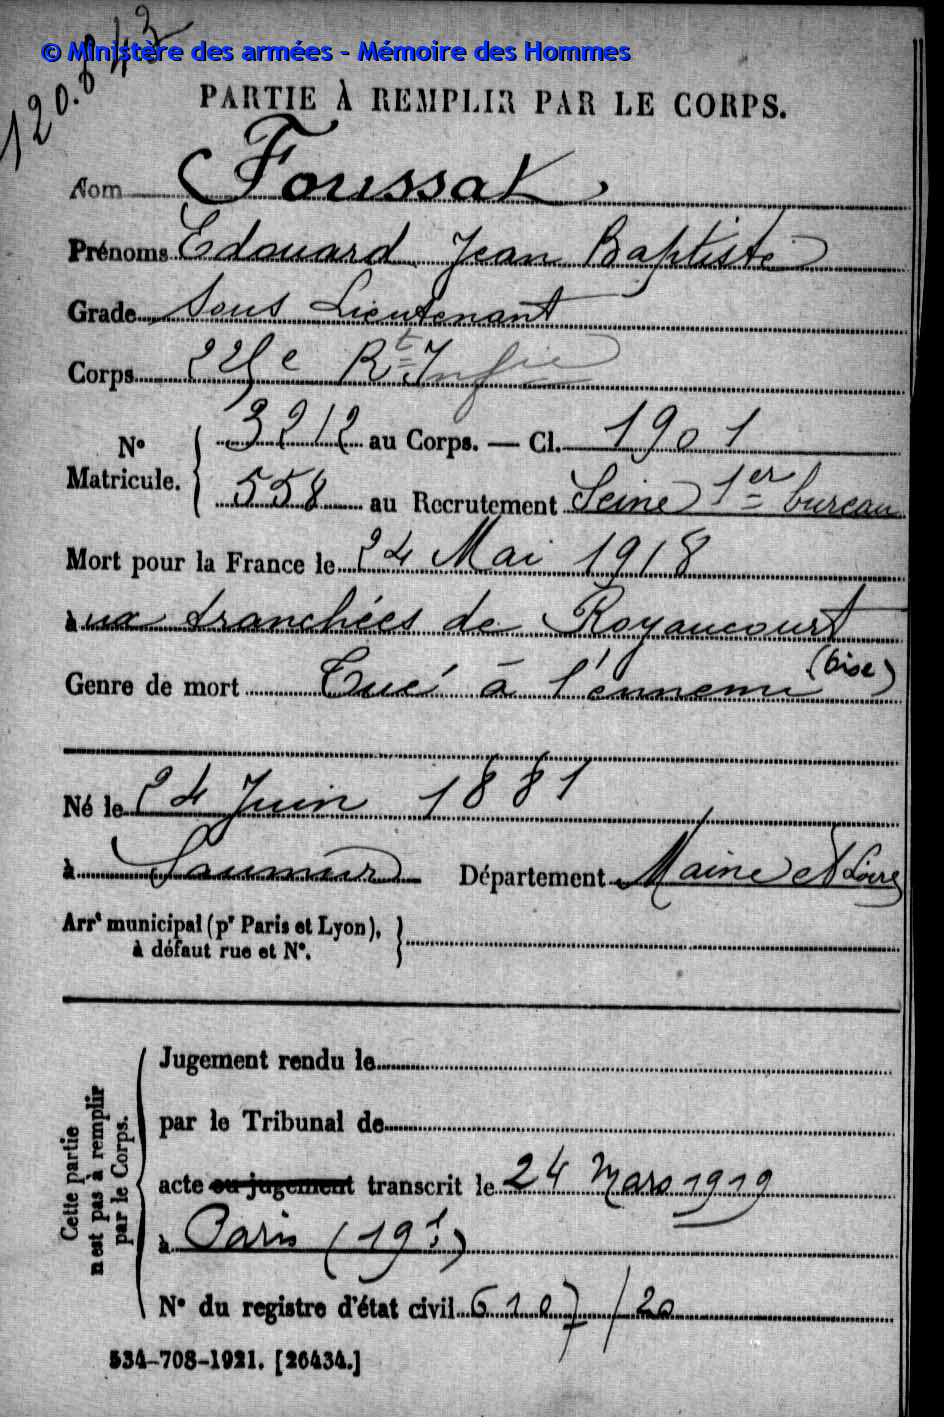 © Ministère des armées - Mémoire des Hommes
120.843
PARTIE À REMPLIR PAR LE CORPS.
Nom Foussat
Prénoms Edouard Jean Baptiste
Grade Sous Lieutenant
Corps 225e Rt Infie
N° Matricule. { 3212 au Corps. — Cl. 1901
558 au Recrutement Seine 1er bureau
Mort pour la France le 24 Mai 1918
à ux tranchées de Royaucourt
(Oise)
Genre de mort Tué à l'ennemi
Né le 24 Juin 1881
à Saumur Département Maine et Loire
Arrt municipal (pr Paris et Lyon), }
à défaut rue et N°.
Cette partie
n'est pas à remplir
par le Corps.
Jugement rendu le
par le Tribunal de
acte ou jugement transcrit le 24 Mars 1919
à Paris (19e)
N° du registre d'état civil 6107/20
534-708-1921. [26434.]